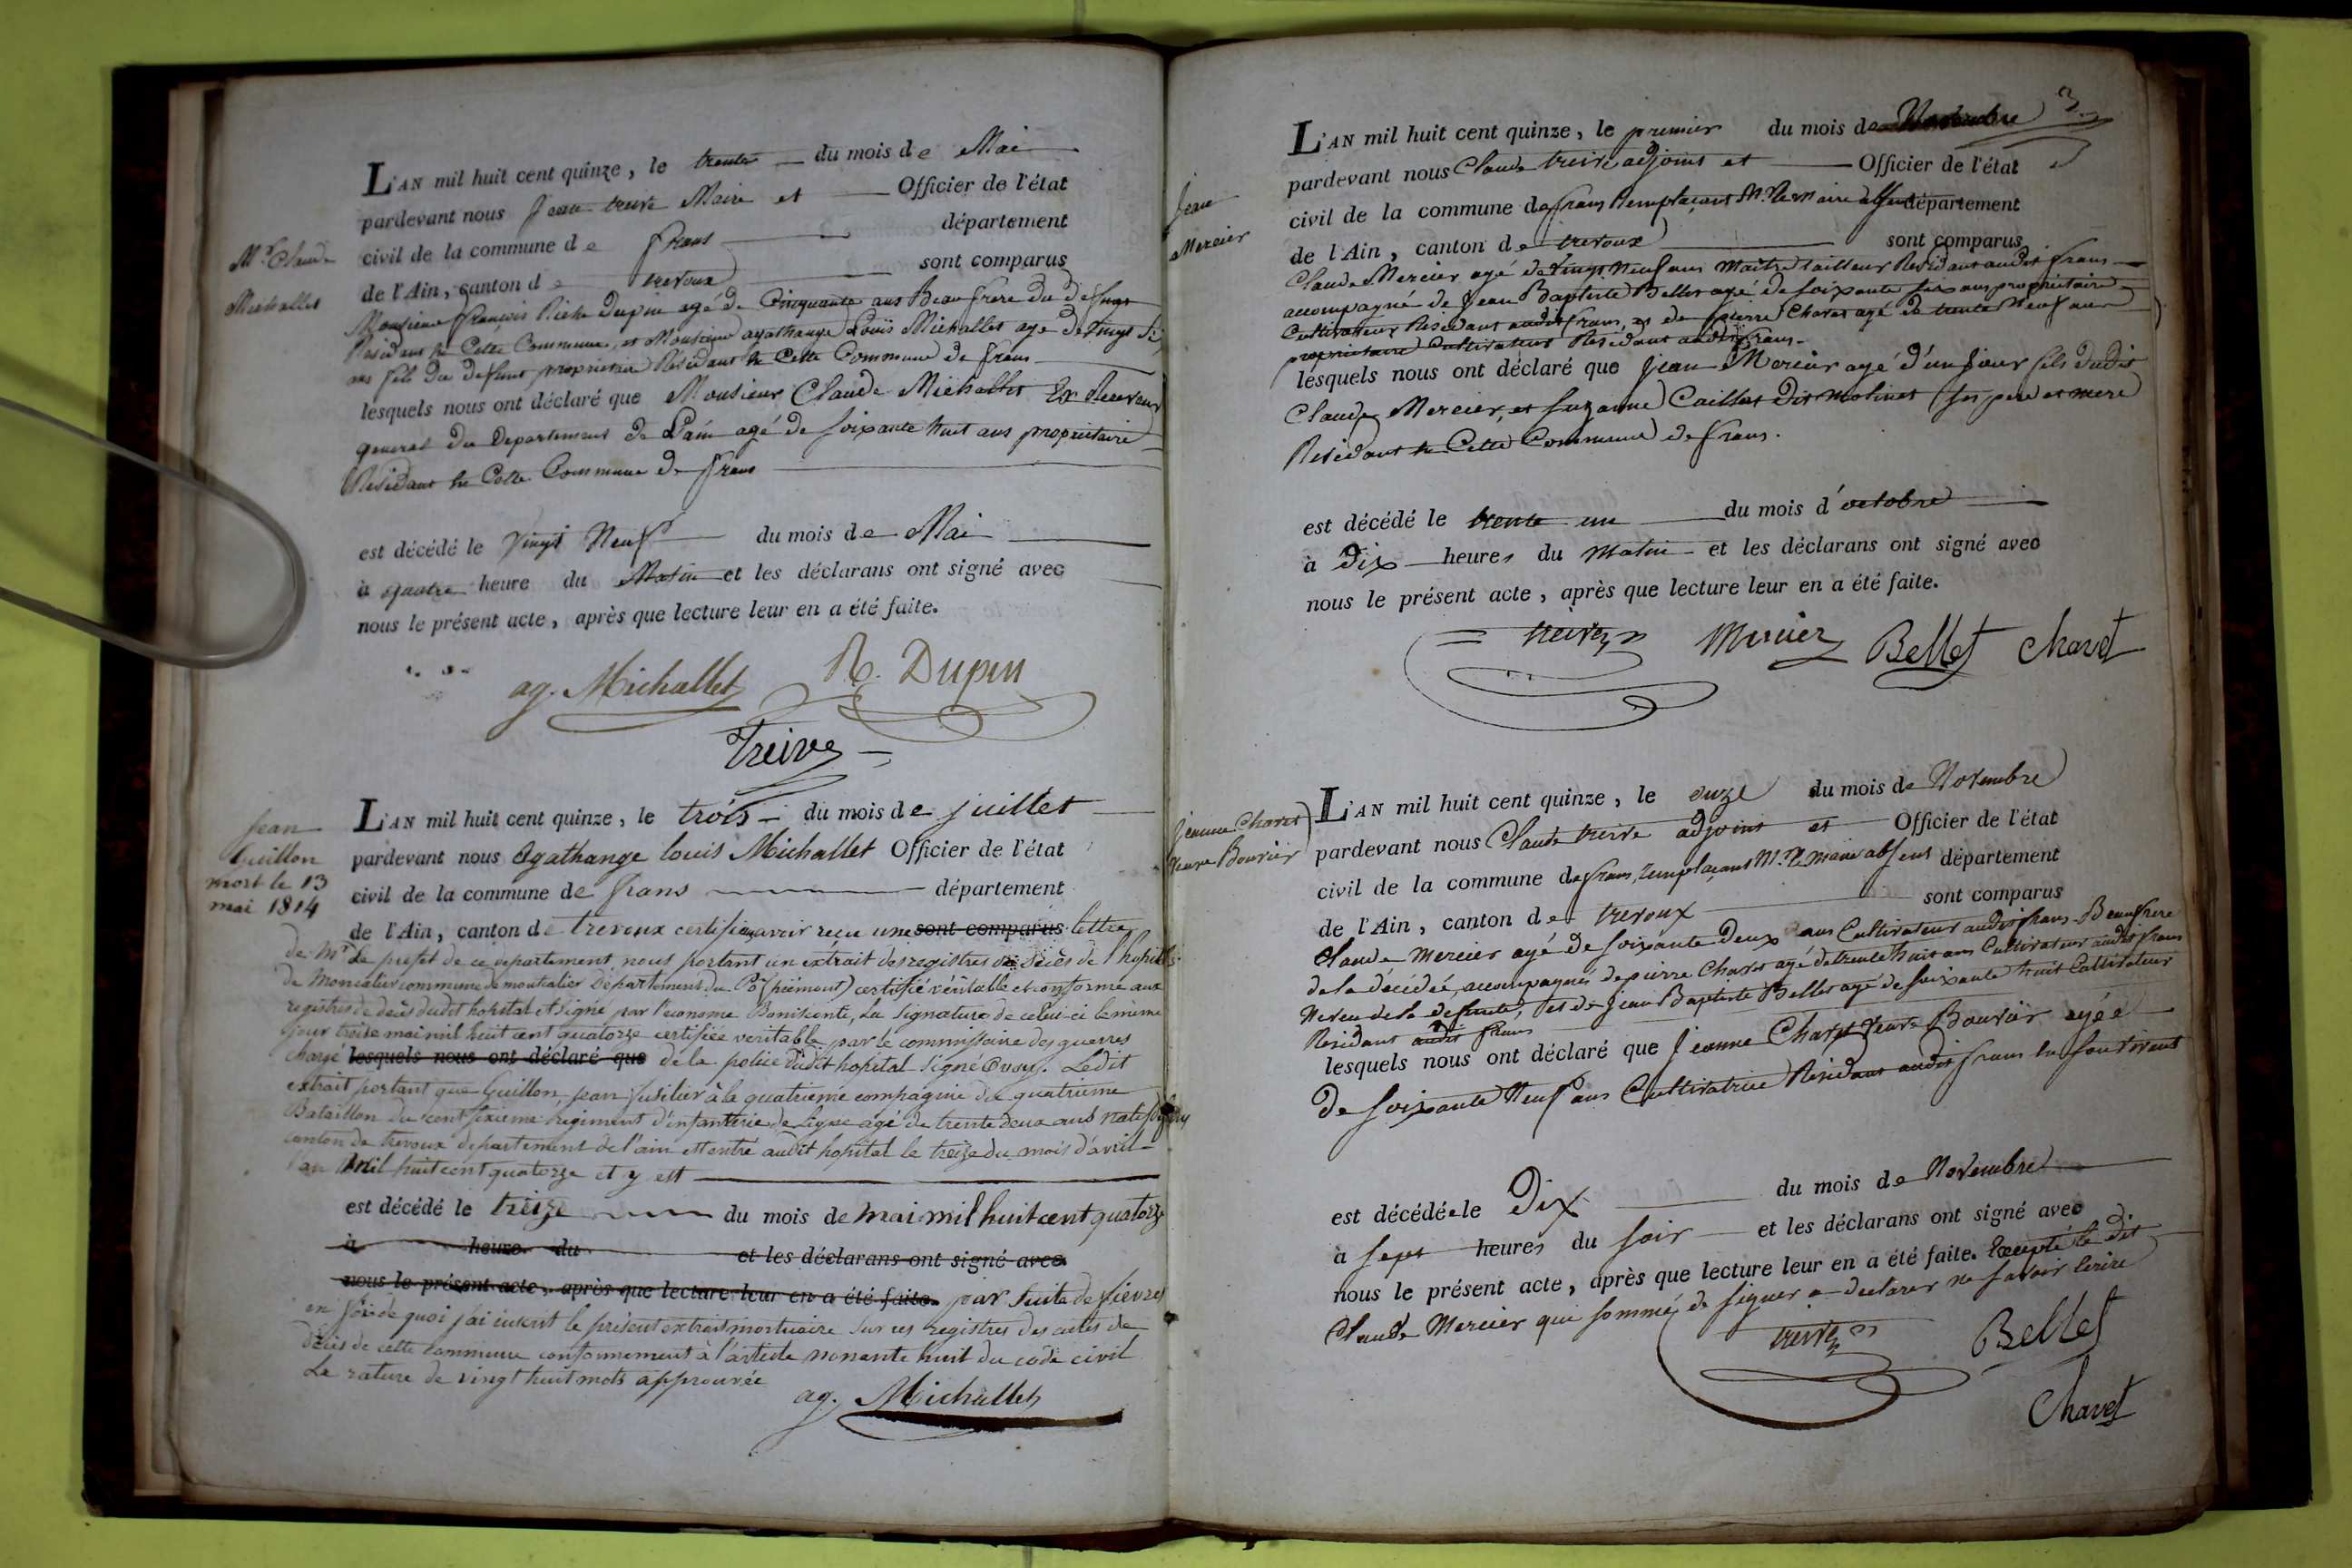 L'AN mil huit cent quinze, le trente du mois de Mai
pardevant nous Jean treive Maire et Officier de l'état
civil de la commune de frans département
de l'Ain, canton de trevoux sont comparus
Mr. Claude
Michallet
Monsieur françois Riche Dupin agé de Cinquante ans Beau frere du defunt
Residant en Cette Commune, et Monsieur agathange Louis Michallet agé de vingt Six
ans fils du defunt proprietaire Residant en Cette Commune de frans
lesquels nous ont déclaré que Monsieur Claude Michallet Ex Receveur
general du Departement de Lain agé de soixante huit ans proprietaire
Residant en Cette Commune de frans
est décédé le vingt Neuf du mois de Mai
à quatre heure du Matin et les déclarans ont signé avec
nous le présent acte, après que lecture leur en a été faite.
ag. Michallet R. Dupin
Treive
Jean
Guillon
mort le 13
mai 1814
L'AN mil huit cent quinze, le trois du mois de juillet
pardevant nous Agathange louis Michallet Officier de l'état
civil de la commune de frans département
de l'Ain, canton de trevoux certifions avoir reçu une sont comparus lettre
de Mr Le prefet de ce departement nous portant un extrait des registres de décès de l'hopital
de Moncalier commune de montcalier Département du Pô (piémont) certifié véritable et conforme aux
registres de decès dudit hopital et signé par l'econome, La signature de celui-ci le même
jour treize mai mil huit cent quatorze certifiée veritable par le commissaire des guerres
chargé lesquels nous ont déclaré que de la police dudit hopital signé. Ledit
extrait portant que Guillon, jean fusilier à la quatrieme compagnie du quatrieme
Bataillon du cent sixieme régiment d'infanterie de Ligne agé de trente deux ans natif de frans
canton de trevoux departement de l'ain est entré audit hopital le treize du mois d'avril
l'an mil huit cent quatorze et y est
est décédé le treize du mois de mai mil huit cent quatorze
à heure du et les déclarans ont signé avec
nous le présent acte, après que lecture leur en a été faite. par suite de fievres
en foi de quoi j'ai inscrit le présent extrait mortuaire sur les registres des actes de
décès de cette commune conformement à l'article nonante huit du code civil
La rature de vingt huit mots approuvée
ag. Michallet
3
L'AN mil huit cent quinze, le premier du mois de Novembre
pardevant nous Claude treive adjoint et Officier de l'état
civil de la commune de frans Remplaçant Mr. le maire absent département
de l'Ain, canton de trevoux sont comparus
Jean
Mercier
Claude Mercier agé de vingt Neuf ans Maitre tailleur Residant audit frans
accompagné de Jean Baptiste Bellet agé de soixante six ans proprietaire
Cultivateur Residant audit frans, et de pierre Charet agé de trente Neuf ans
proprietaire Cultivateur Residant audit frans.
lesquels nous ont déclaré que Jean Mercier agé d'un jour fils dudit
Claude Mercier, et suzanne Caillat dit molinet ses pere et mere
Residant en Cette Commune de frans.
est décédé le trente un du mois d'octobre
à Dix heures du Matin et les déclarans ont signé avec
nous le présent acte, après que lecture leur en a été faite.
treive Mercier Bellet Chavet
Jeanne Charet
veuve Bouvier
L'AN mil huit cent quinze, le onze du mois de Novembre
pardevant nous Claude treive adjoint et Officier de l'état
civil de la commune de frans, remplaçant Mr. le maire absent département
de l'Ain, canton de trevoux sont comparus
Claude Mercier agé de soixante Deux ans Cultivateur audit frans Beau frere
de la décédée, accompagnés de pierre Charet agé de trente huit ans Cultivateur audit frans
Neveu de la defunte, et de Jean Baptiste Bellet agé de soixante huit Cultivateur
Residant audit frans
lesquels nous ont déclaré que Jeanne Charet veuve Bouvier agée
de soixante Neuf ans Cultivatrice Residant audit frans
est décédée le Dix du mois de Novembre
à sept heures du soir et les déclarans ont signé avec
nous le présent acte, après que lecture leur en a été faite. Excepté le dit
Claude Mercier qui sommé de signer a declarer ne savoir Ecrire
treive Bellet
Chavet